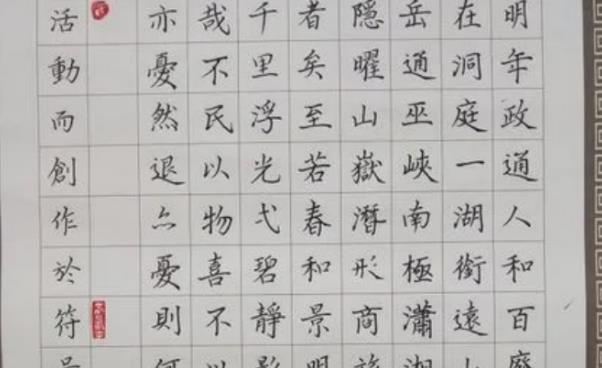 明年政通人和百廢
在洞庭一湖銜遠山
岳通巫峽南極瀟湘
隱曜山嶽潛形商旅
者矣至若春和景明
千里浮光弌碧靜影
哉不民以物喜不以
亦憂然退亦憂則何
活動而創作於符